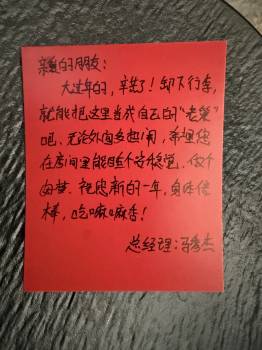 亲爱的朋友:
大过年的,辛苦了!卸下行李,
就能把这里当成自己的“老窝”
吧.无论外面多热闹,希望您
在房间里能睡个安稳觉,做个
好梦.祝您新的一年,身体倍
棒,吃嘛嘛香!
总经理:马秀杰